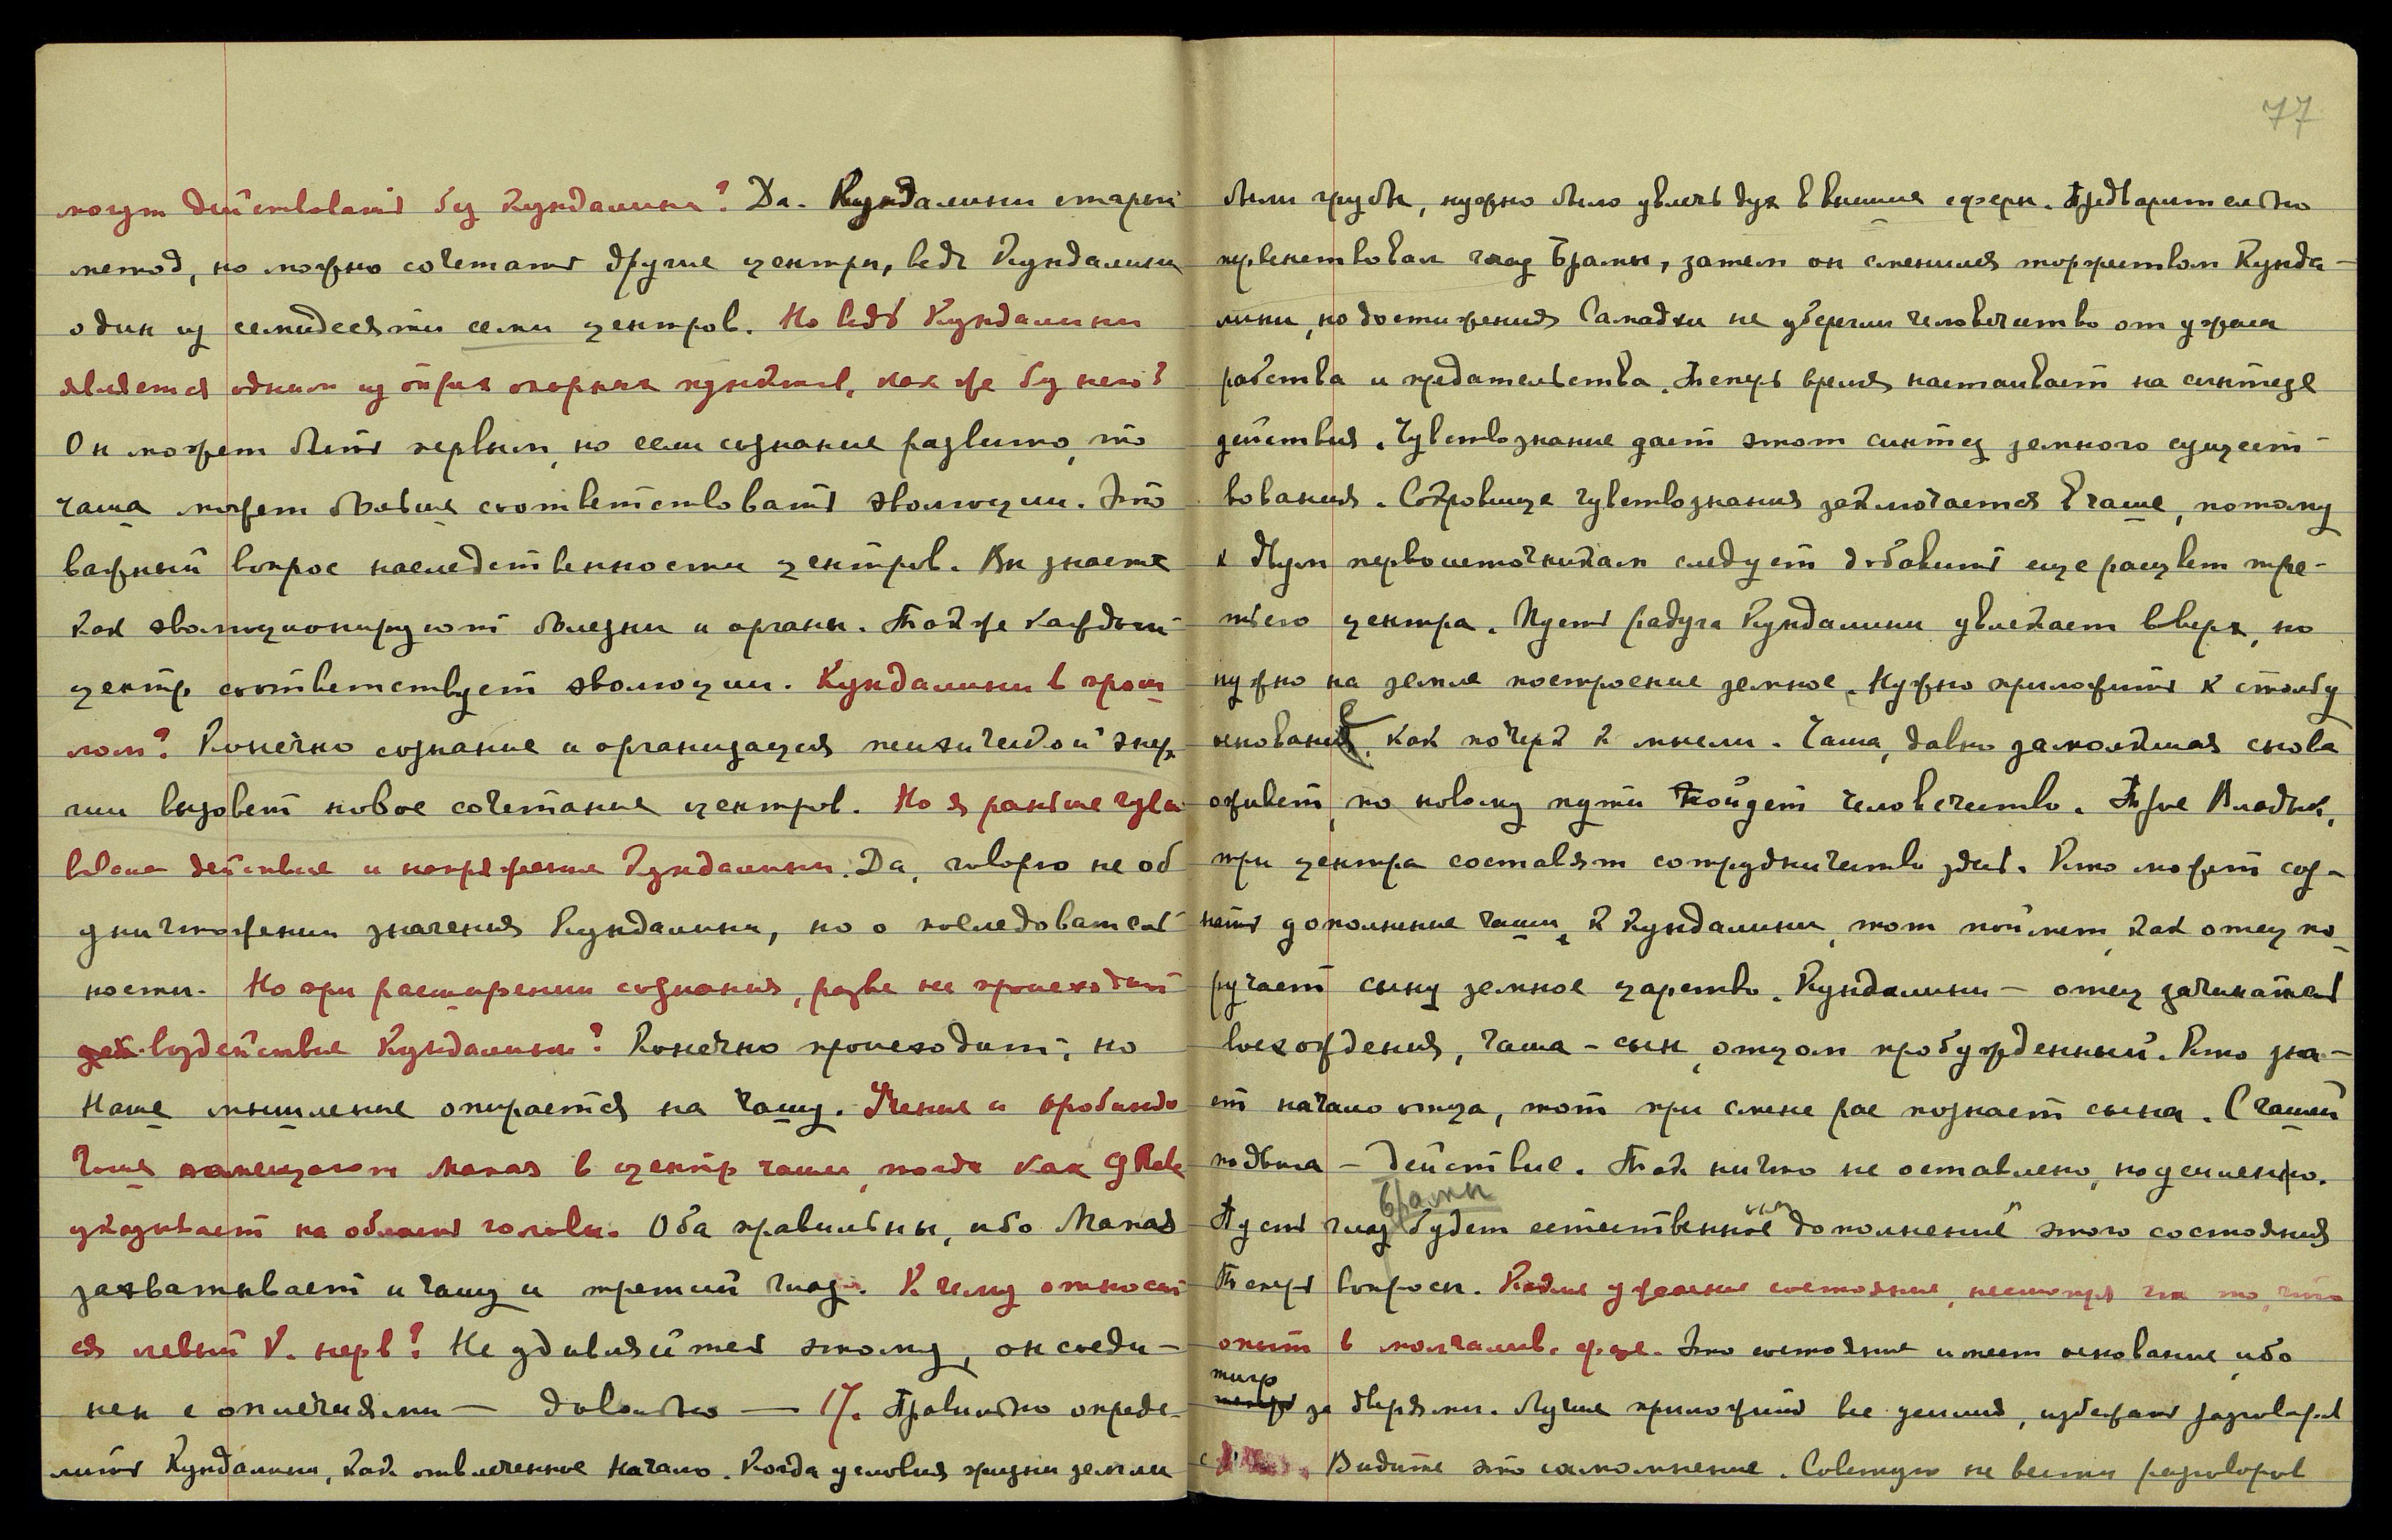 могут действовать без Кундалини? Да. Кундалини старый
метод, но можно сочетать другие центры, ведь Кундалини
один из семидесяти семи центров. Но ведь Кундалини
является одним из опорных пунктов, как же без него?
Он может быть первым, но если сознание развито, то
чаша может больше соответствовать эволюции. Это
важный вопрос наследственности центров. Вы знаете
как эволюционируют болезни и органы. Так же каждый
центр соответствует эволюции. Кундалини в прош
лом? Конечно сознание и организация психической энер
гии вызовет новое сочетание центров. Но я раньше чувст
вовала действие и напряжение Кундалини. Да, говорю не об
уничтожении значения Кундалини, но о последователь
ности. Но при расширении сознания, разве не происходит
воздействие Кундалини? Конечно происходит, но
Наше мышление опирается на чашу. Учение и
помещают Манас в центр чаши, тогда как
указывает на область головы. Оба правильны, ибо Манас
захватывает и чашу и третий глаз. К чему относит
ся левый К. нерв? Не удивляйтесь этому, он соеди-
нен с оплечиями — довольно — 17. Правильно опреде-
лить Кундалини, как отвлеченное Начало. Когда условия жизни земли
77
были грубы, нужно было увлечь дух в высшие сферы. Предварительно
первенствовал глаз Брамы, затем он сменился торжеством Кунда-
лини, но достижения Самадхи не уберегли человечество от ужаса
рабства и предательства. Теперь время настаивает на синтезе
действия. Чувствознание дает этот синтез земного сущест-
вования. Сокровище чувствознания заключается в чаше, потому
к двум первоисточникам следует добавить еще расцвет тре-
тьего центра. Пусть радуга Кундалини увлекает вверх, но
нужно на земле построение земное. Нужно приложить к столбу
основание, как почерк к мысли. Чаша, давно замолкшая снова
оживет, по новому пути пойдет человечество. Трое Владык,
три центра составят сотрудничество здесь. Кто может соз-
нать дополнение чаши к Кундалини, тот поймет, как отец по
ручает сыну земное царство. Кундалини — отец зачинатель
восхождения, чаша - сын, отцом пробужденный. Кто зна-
ет начало отца, тот при смене рас познает сына. С чашей
подвига — действие. Так ничто не оставлено, но усилено.
Брамы
Пусть глаз будет естественным дополнением этого состояния
Теперь вопросы. Какие ужасные состояние, несмотря на то, что
опыт в молчалив. фазе. Это состояние имеет основание, ибо
тигр
за дверями. Лучше приложить все усилия, избежать разговоров
с Видите это самомнение. Советую не вести разговоров